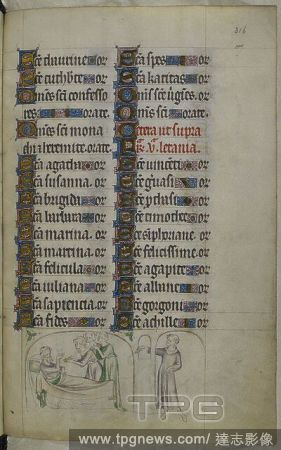 316
Sc̄e cuthb̄te. or
Om̄es sc̄i confesso
res orate.
Om̄es sc̄i mona
chi & heremite. orate.
Sc̄a agatha or
Sc̄a susanna. or
Sc̄a brigida or
Sc̄a barbara or
Sc̄a marina. or
Sc̄a martina. or
Sc̄a felicula or
Sc̄a iuliana or
Sc̄a sapiencia. or
Sc̄a fides or
Sc̄a spes or
Sc̄a karitas or
Om̄s sc̄e uḡines. or
Om̄s sc̄i orate.
Cetera ut supra
letania.
Sc̄e uincenti or
Sc̄e geruasi or
Sc̄e pthasi or
Sc̄e timothee or
Sc̄e simphoriane or
Sc̄e felicissime. or
Sc̄e agapite or
Sc̄e albine or
Sc̄e gorgoni or
Sc̄e achillee or
TPG
www.tpgnews.com/達志影像